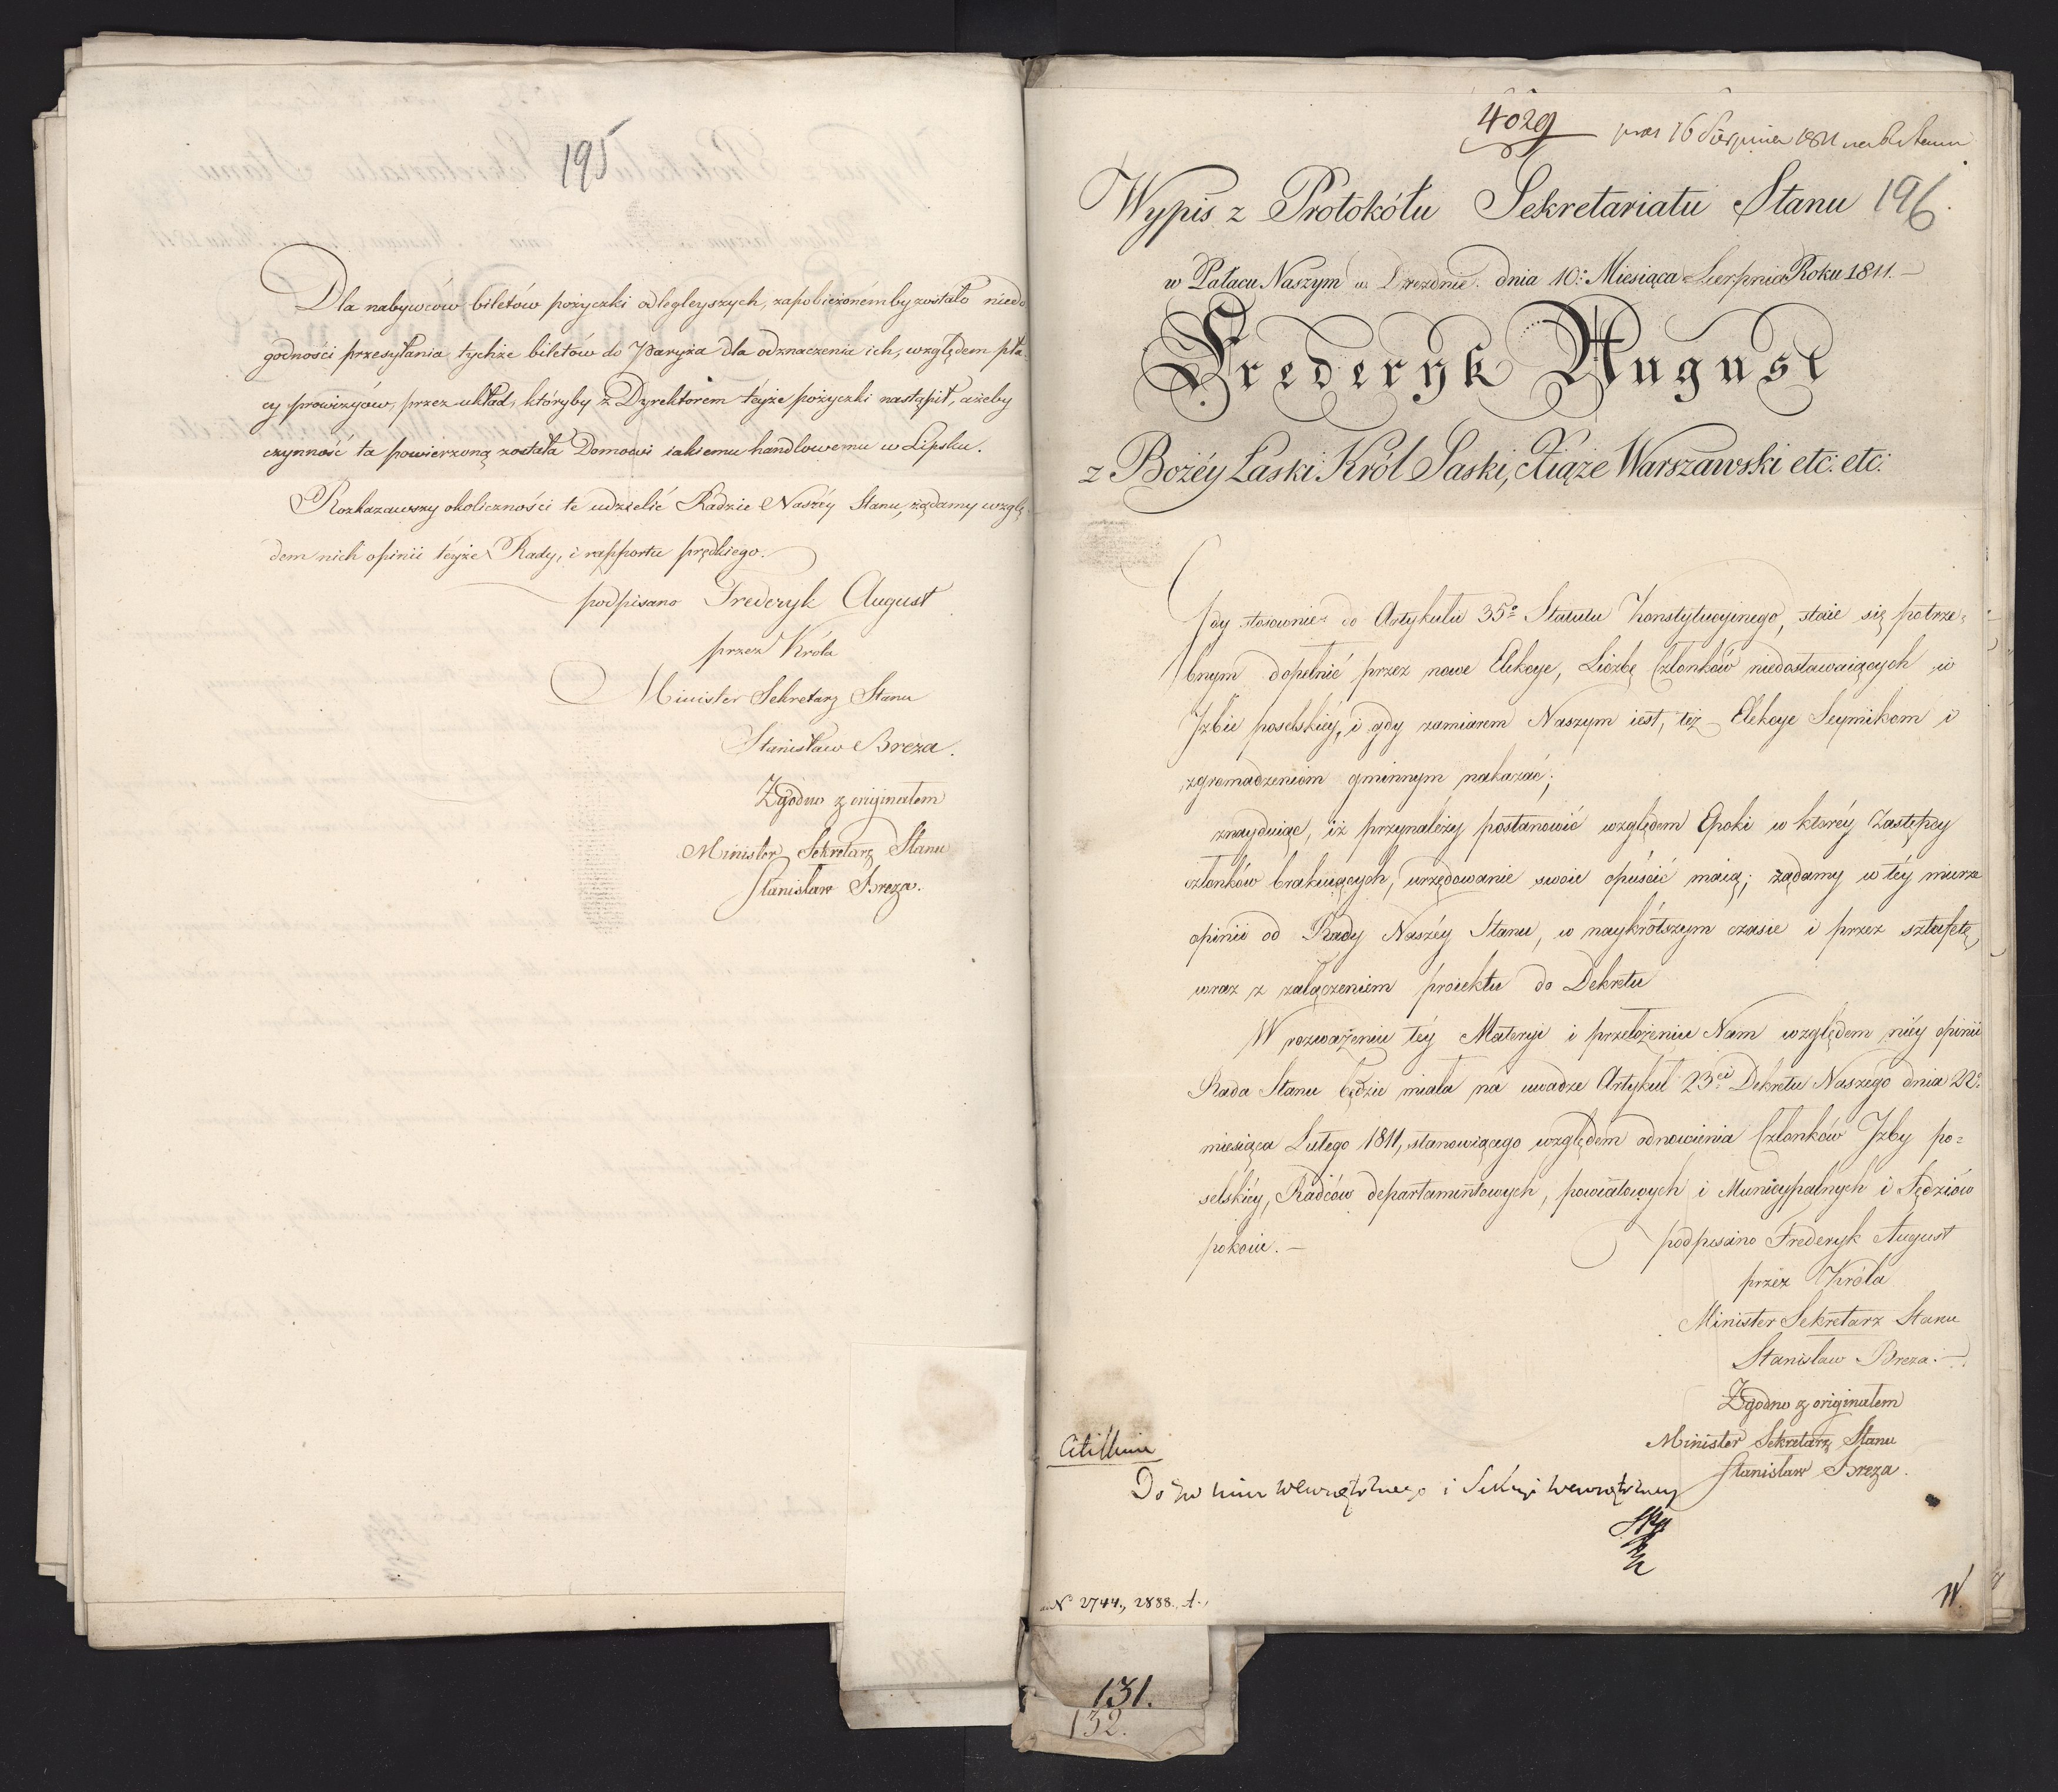 195
Dla nabywców biletów pożyczki odlegleyszych, zapobieżonem by zostało niedo
godności przesyłania tychże biletów do Paryża dla odznaczenia ich, względem pła-
cy prowizyów, przez układ, któryby z Dyrektorem teyże pożyczki nastąpił, ażeby
czynność ta powierzoną została Domowi iakiemu handlowemu w Lipsku.
Rozkazawszy okoliczności te udzielić Radzie Naszéy Stanu, żądamy wzglę-
dem nich opinii téyże Rady, i rapportu prędkiego.
podpisano Frederyk August
przez Króla
Minister Sekretarz Stanu
Stanisław Breza.
Zgodno z originałem
Minister Sekretarz Stanu
Stanisław Breza.
4029 16 Sierpnia 1811
Wypis z Protokółu Sekretariatu Stanu 196.
w Pałacu Naszym w Dreznie. dnia 10: Miesiąca Sierpnia Roku 1811.-
Frederyk August
z Bożéy Łaski Król Saski, Xiąże Warszawski etc: etc:
Gdy stosownie do Artykułu 35º Statutu Konstytucyinego, staie się potrze=
bnym dopełnić przez nowe Elekcye, Liczbę Członków niedostawaiących w
Izbie poselskiéy, i gdy zamiarem Naszym iest, też Elekcye Seymikom i
zgromadzeniom gminnym nakazać;
znayduiąc, iż przynależy postanowić względem Epoki w któréy Zastępcy
członków brakuiących, urzędowanie swoie opuścić maią; żądamy w téy mierze
opinii od Rady Naszéy Stanu, w naykrótszym czasie i przez sztafetę,
wraz z załączeniem proiektu do Dekretu
W rozważeniu téy Materyi i przełożeniu Nam względem niéy opinii
Rada Stanu będzie miała na uwadze Artykuł 23ci Dekretu Naszego dnia 22º
miesiąca Lutego 1811, stanowiącego względem odnowienia Członków Izby po=
selskiéy, Radców departamentowych, powiatowych i Municypalnych i Sędziów
pokoiu.-
podpisano Frederyk August
przez Króla
Minister Sekretarz Stanu
Stanisław Breza.-
Zgodno z originałem
Minister Sekretarz Stanu
Stanisław Breza.
Do wewnętrznego i Sekcyi wewnętrzney
N° 2744., 2888.
131.
132.